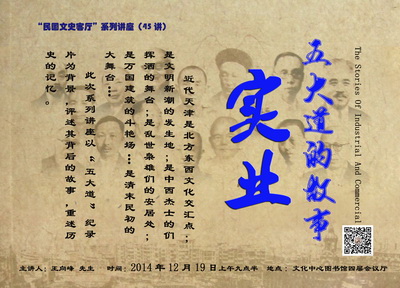 “民国文史客厅”系列讲座（45 讲）
五大道的故事
The Stories Of Industrial And Commercial
实业
近代天津是北方东西文化交汇点，
是文明新潮的发生地；是中西杰士的们
挥洒的舞台；是乱世枭雄们的安居处；
是万国建筑的斗艳场…是清末民初的
大舞台…
此次系列讲座以“五大道”纪录
片为背景，评述其背后的故事，重述历
史的记忆。
主讲人：王向峰 先生 时间：2014年12月19日上午九点半 地点：文化中心图书馆四层会议厅